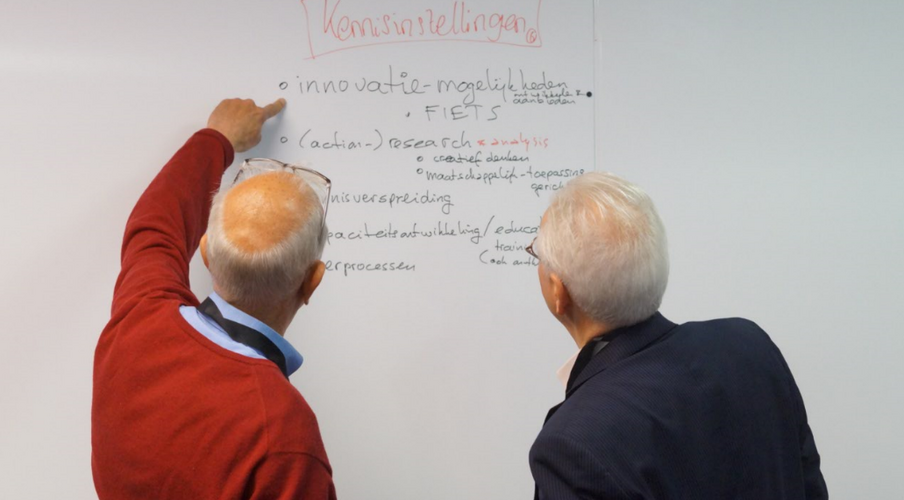 Kennisinstellingen
innovatie-mogelijkheden
aanbieden
FIETS
(action-)research analysis
creatief denken
maatschappelijk-toepassing
gerich
nisverspreiding
paciteitsontwikkeling/educa
train
(ook
erprocessen